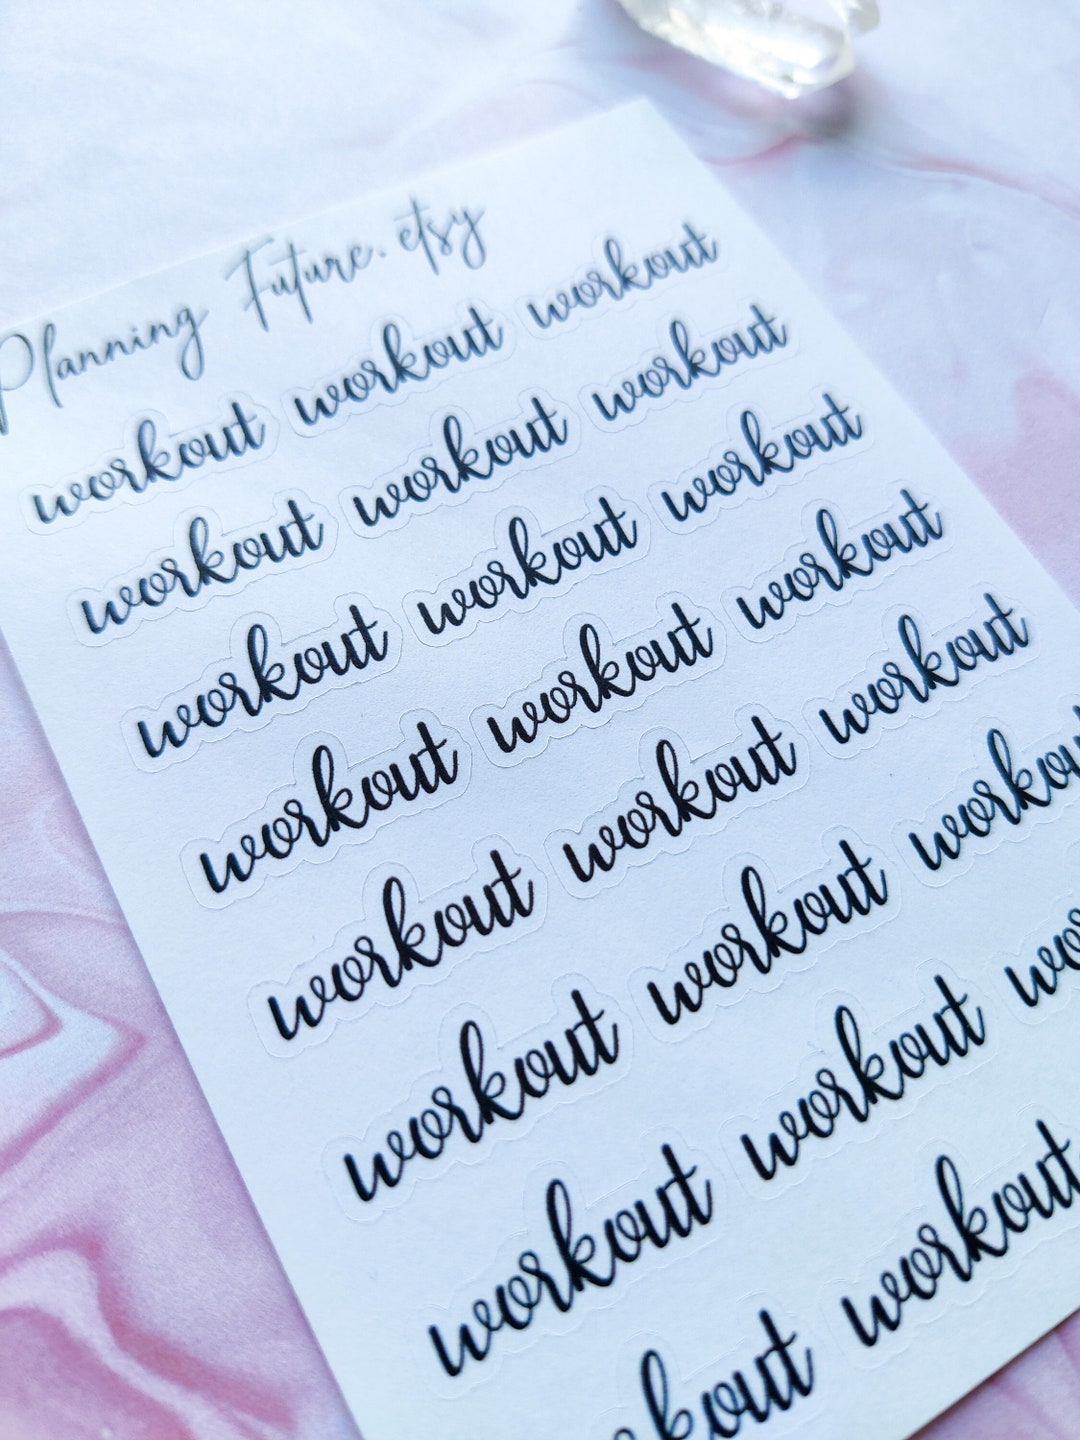 Planning Future.etsy
workout workout workout
workout workout workout
workout workout workout
workout workout workout
workout workout workout
workout workout workou
workout workout wo
kout workout